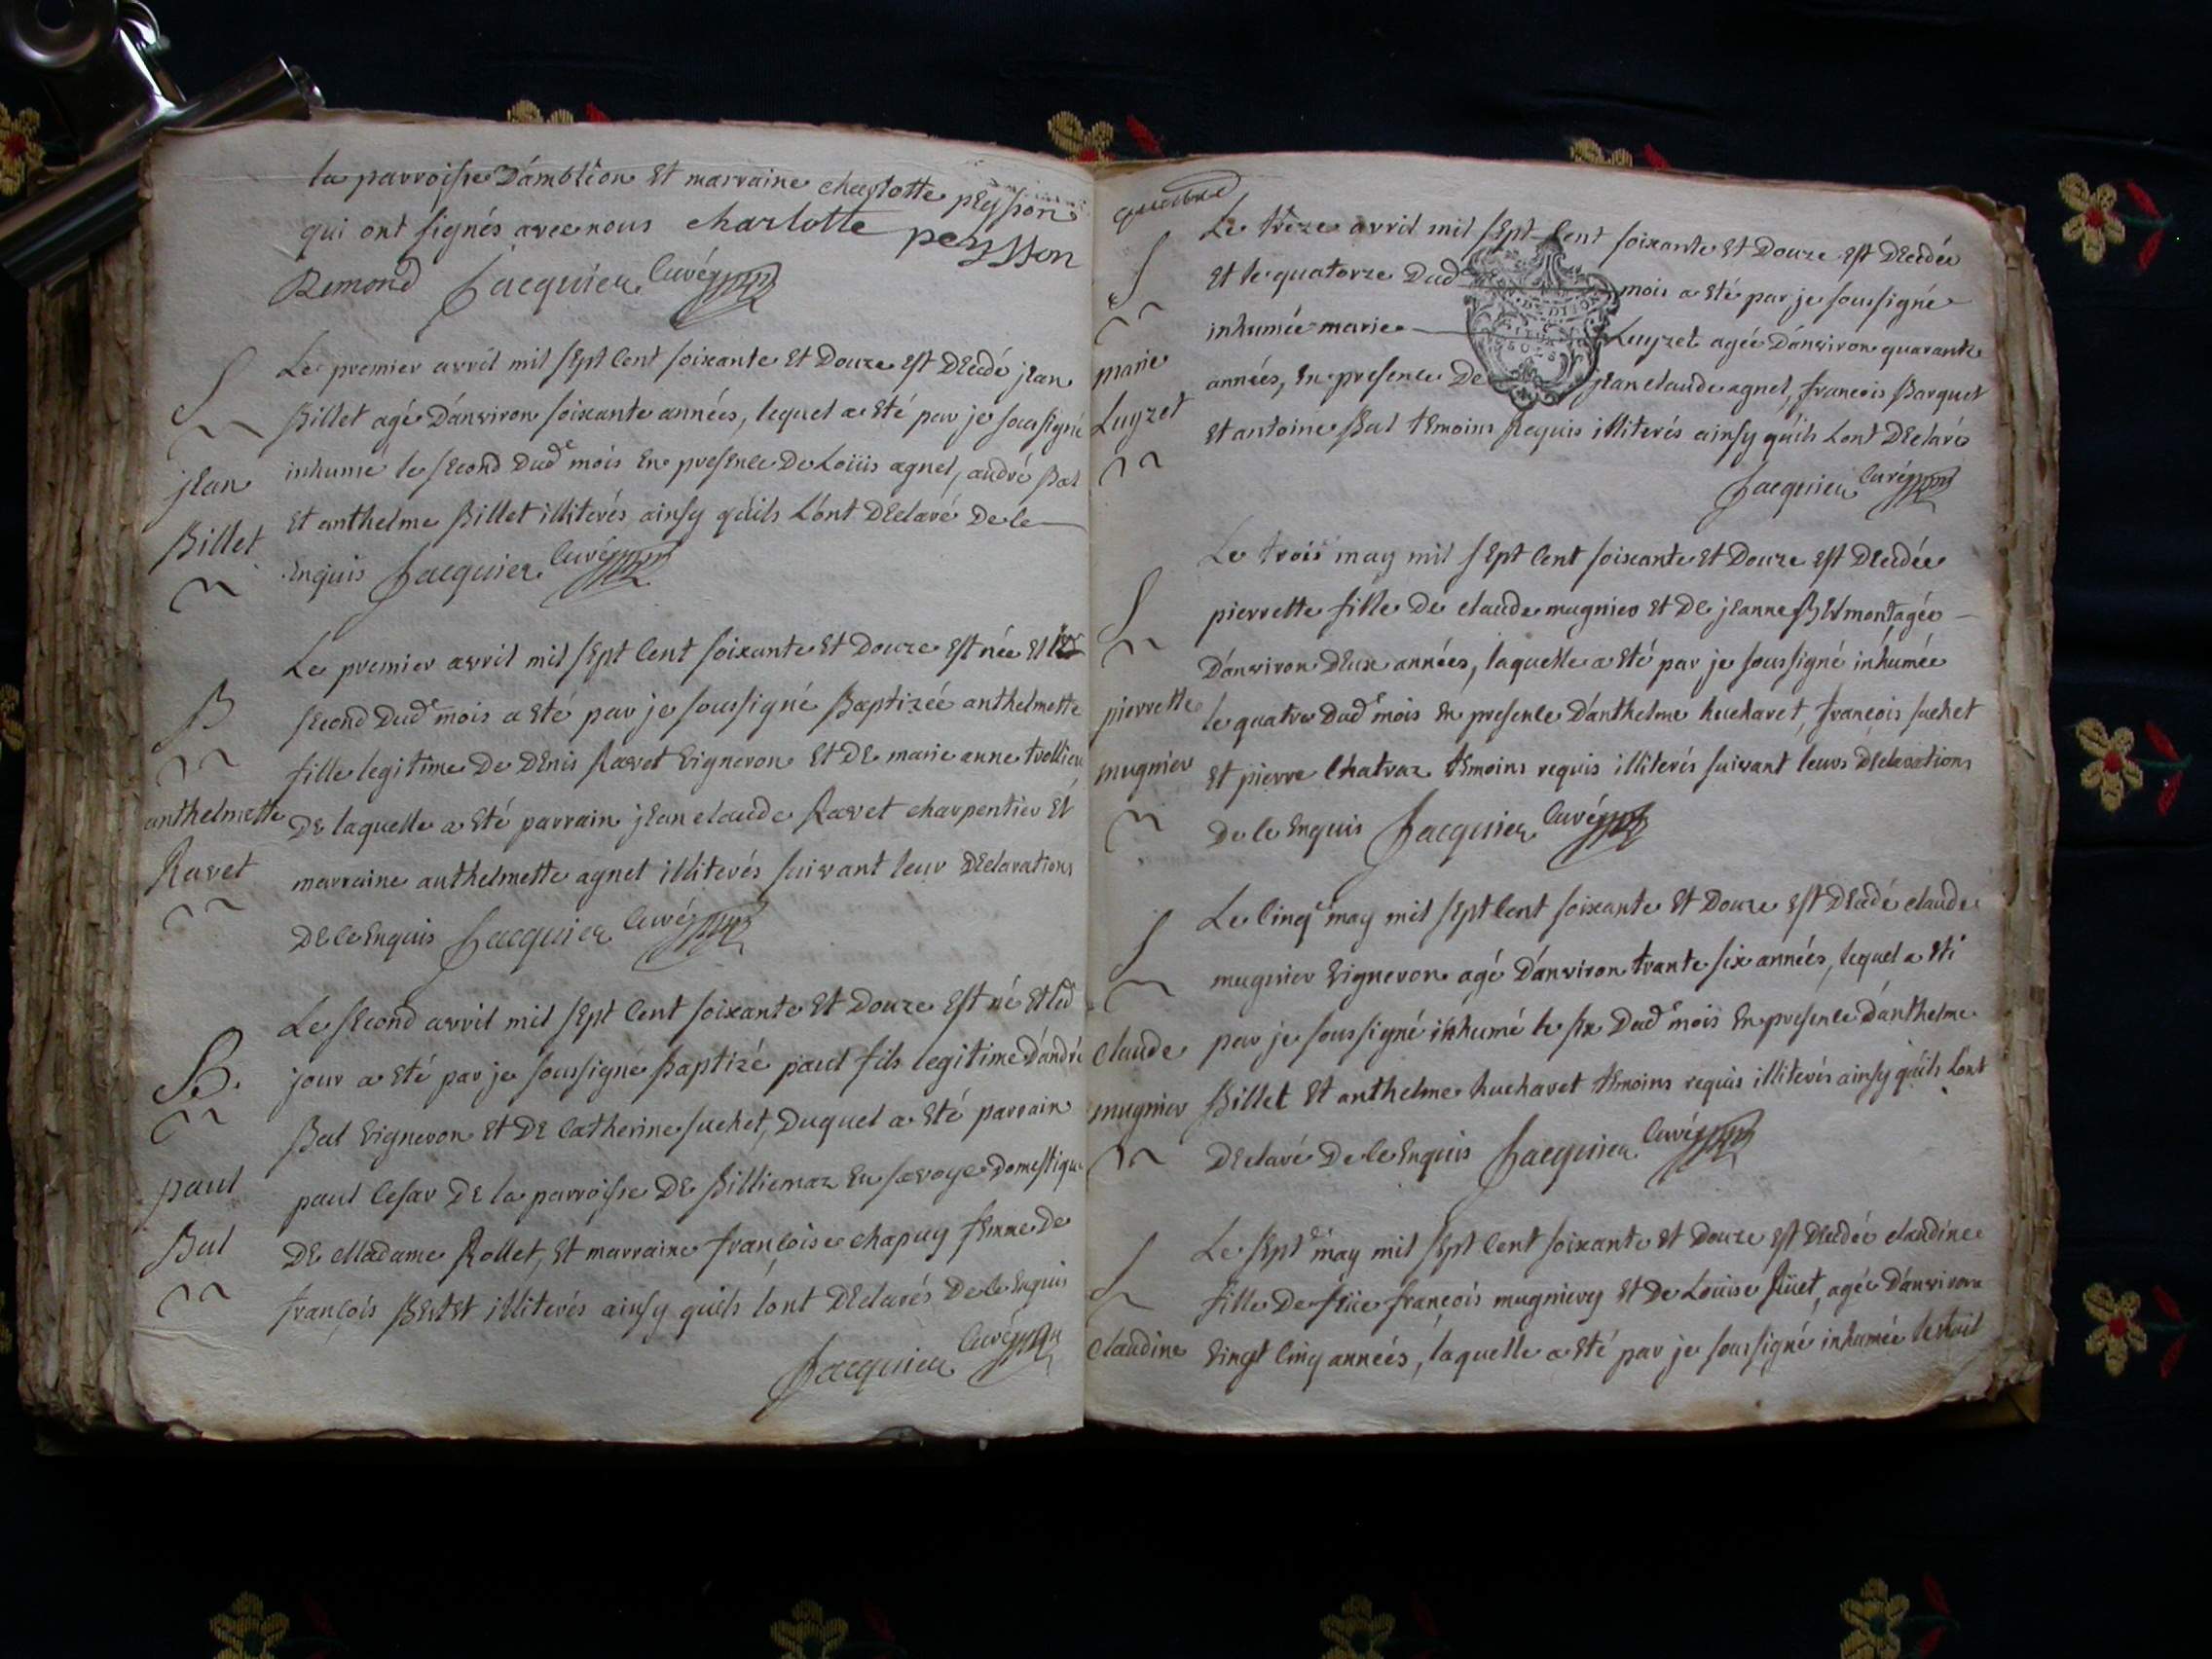 la parroisse D'amblëon Et marraine charlotte pEysson
qui ont signés avec nous charlotte peysson
Remond Jacquier Curé
Le premier avril mil sEpt Cent soixante Et Douze Est DEcdé jEan
Billet agé D'anviron soixante années, lequel a Eté par je soussigné
inhumé le sEcond Dud.e mois En presEnce De Loüis agnel, andré Bal
Et anthelme Billet illiterés ainsy qu'ils L'ont DEclaré De ce
Enquis Jacquier Curé
S
jEan
Billet
Le premier avril mil sEpt Cent soixante Et Douze Est née Et
sEcond Dud.e mois a Eté par je soussigné Baptizée anthelmette
fille legitime De DEnis Ravet Vigneron Et DE marie anne trollieu
DE laquelle a Eté parrain jEan claude Ravet charpentier Et
marraine anthelmette agnel illiterés suivant leur DEclarations
DE ce Enquis Jacquier Curé
B
anthelmette
Ravet
Le sEcond avril mil sEpt Cent soixante Et Douze Est né Et led
jour a Eté par je soussigné Baptizé paul fils legitime D'andré
Bal Vigneron Et DE Catherine suchet, Duquel a Eté parrain
paul Cesar DE la parroisse DE Billiemaz En savoye Domestique
DE Madame Rollet, Et marraine françoise chapuy fEmme De
françois BErtEt illiterés ainsy qu'ils l'ont DEclarés De ce Enquis
Jacquier Curé
B.
paul
Bal
Le trèze avril mil sEpt Cent soixante Et Douze Est DEcdée
Et le quatorze Dud mois a Eté par je soussigné
inhumée marie Luyzet agée D'anviron quarante
années, En presence De jEan claude agnel, francois Barquet
Et antoine Bal tEmoins Requis illiterés ainsy qu'ils L'ont DEclaré
Jacquier Curé
S
marie
Luyzet
Le trois may mil sEpt Cent soixante Et Douze Est DEcdée
pierrette fille De claude mugnier Et DE jEanne BElmont agée
D'anviron DEux années, laquelle a Eté par je soussigné inhumée
le quatre Dud.e mois En presence D'anthelme huchavet, francois suchet
Et pierre Chatraz tEmoins requis illiterés suivant leurs DEclarations
De ce Enquis Jacquier Curé
S
pierrette
mugnier
Le Cinq.e may mil sEpt Cent soixante Et Douze Est DEcdé claude
mugnier Vigneron agé D'anviron trante six années, lequel a Eté
par je soussigné inhumé le six Dud.e mois En presence D'anthelme
Billet Et anthelme huchavet tEmoins requis illiterés ainsy qu'ils L'ont
DEclaré De ce Enquis Jacquier Curé
S
claude
mugnier
Le sEpt.e may mil sEpt Cent soixante Et Douze Est DEcdée claudine
fille De fEüe francois mugniery Et De Loüise agée D'anviron
Vingt Cinq années, laquelle a Eté par je soussigné inhumée le huit
S
claudine